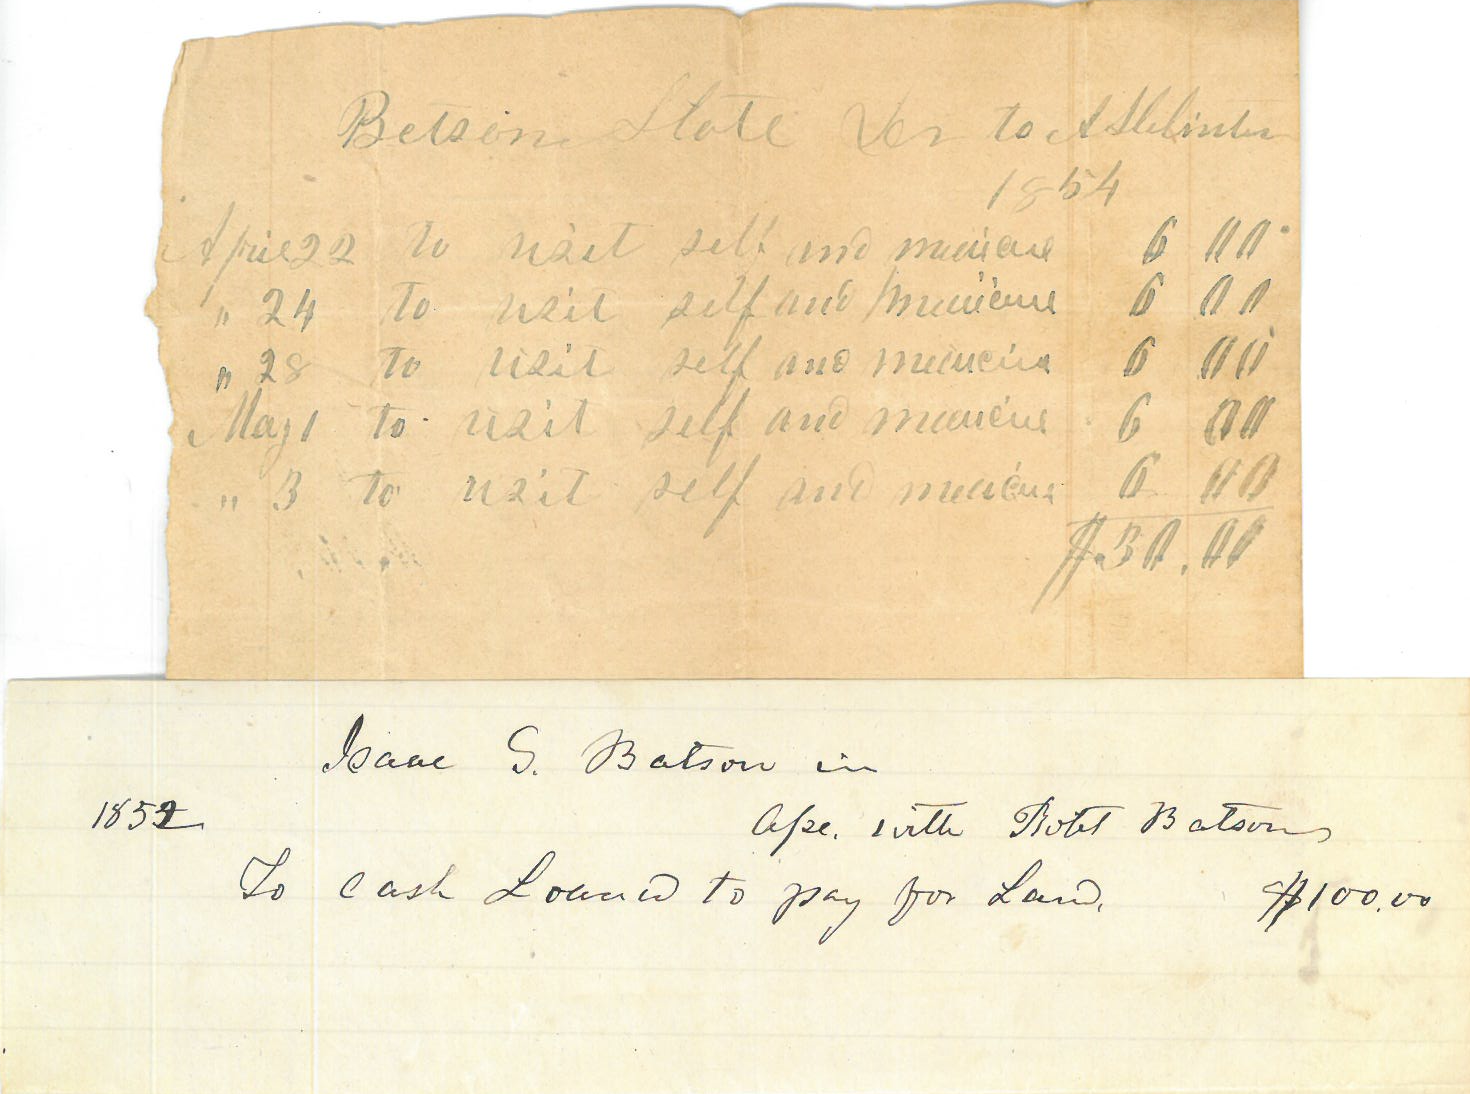 Betson State Der to A
1854
April 22 to visit self and medicine 6 00
" 24 to visit self and medicine 6 00
" 28 to visit self and medicine 6 00
May 1 to visit self and medicine 6 00
" 3 to visit self and medicine 6 00
$.30.00
Isaac S. Batson in
1852
with Robt Batson
To Cash Loaned to pay for Land. $100.00